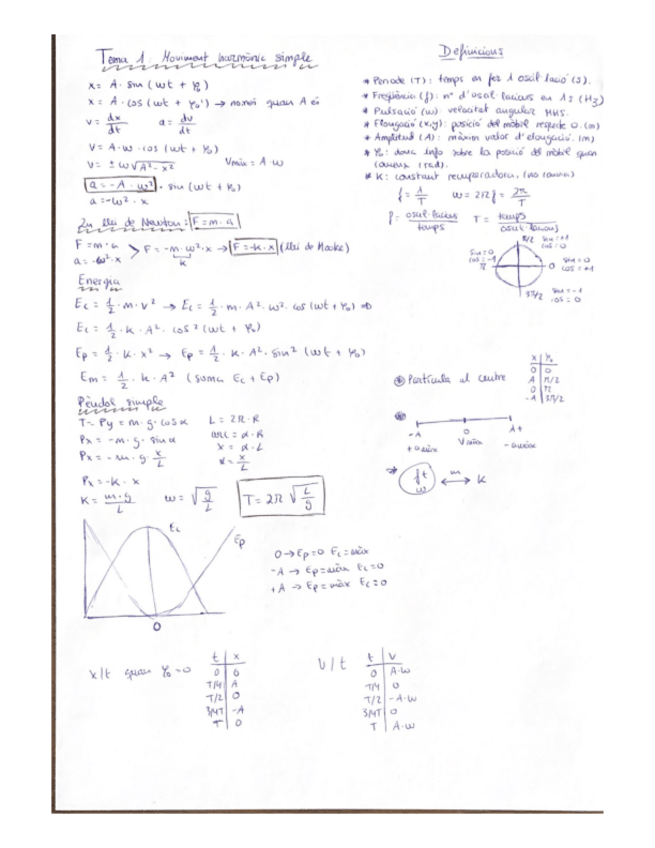 Tema 1: Moviment harmònic simple
x = A · sin (ωt + φ₀)
x = A · cos (ωt + φ₀') → només quan A és
v = dx/dt   a = dv/dt
V = A · ω · cos (ωt + φ₀)
V = ± ω √A² - x²   Vmàx = A · ω
a = -A · ω² · sin (ωt + φ₀)
a = -ω² · x
2n llei de Newton: F = m · a
F = m · a
a = -ω² · x > F = -m · ω² · x → F = -k · x (llei de Hooke)
k
Energia
Ec = 1/2 · m · v² → Ec = 1/2 · m · A² · ω² · cos (ωt + φ₀) ⇒
Ec = 1/2 · k · A² · cos² (ωt + φ₀)
Ep = 1/2 · k · x² → Ep = 1/2 · k · A² · sin² (ωt + φ₀)
Em = 1/2 · k · A² (suma Ec + Ep)
Pèndol simple
T = Py = m · g · cos α   L = 2π · R
Px = -m · g · sin α   arc = α · R
Px = -m · g · x/L   x = α · L
α = x/L
Px = -k · x
K = m·g/L   ω = √g/L   T = 2π √L/g
Ec
Ep
0
0 → Ep = 0 Ec = màx
-A → Ep = màx Ec = 0
+A → Ep = màx Ec = 0
x/t quan φ₀ = 0
t x
0 0
T/4 A
T/2 0
3/4T -A
T 0
v/t
t v
0 A·ω
T/4 0
T/2 -A·ω
3/4T 0
T A·ω
Definicions
* Periode (T): temps en fer 1 oscil·lació (s).
* Freqüència (f): nº d'oscil·lacions en 1s (Hz)
* Pulsació (ω): velocitat angular MHS.
* Elongació (x,y): posició del mòbil respecte 0. (m)
* Amplitud (A): màxim valor d'elongació. (m)
* φ₀: dona info sobre la posició del mòbil quan
(rad).
* K: constant recuperadora. (no canvia)
f = 1/T   ω = 2πf = 2π/T
f = oscil·lacions/temps   T = temps/oscil·lacions
π/2 sin = +1
cos = 0
sin = 0
cos = -1
π
0 sin = 0
cos = +1
3π/2 sin = -1
cos = 0
* Partícula al centre
x φ₀
0 0
A π/2
0 π
-A 3π/2
*
-A 0 A+
+ a màx V màx - a màx
* f t
ω
m
↔ K